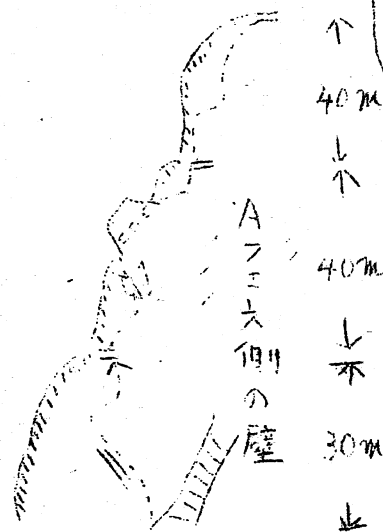 40m
40m
30m
Aフェース側の壁